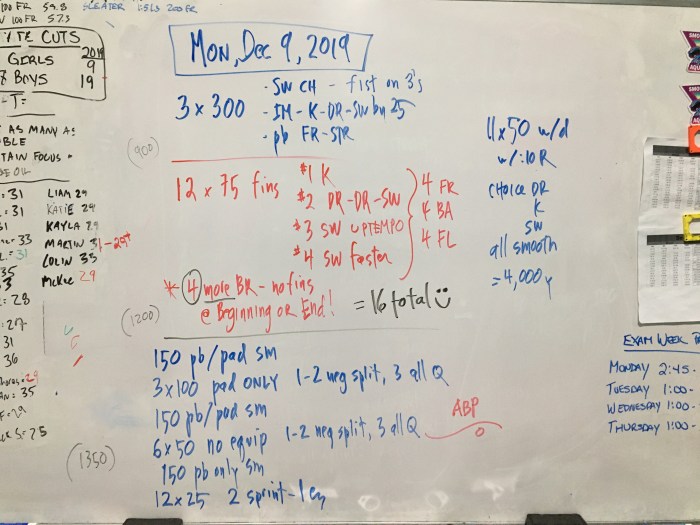 100 FR 59.8 SLEATER 1:51.3 200 FR
100 FR 57.3
CUTS
GIRLS 9
BOYS 19
2019
- T:
AS MANY AS
BLE
TAIN FOCUS
= 31 LIAM 29
= 31 KATIE 29
31 KAYLA 29
= 33 MARTIN 31-29+
= 31 COLIN 35
35 McKee 29
33
= 28
= 27
31
36
= 29
AN = 35
S = 25
MON, Dec 9, 2019
3 x 300
· SW CH - fist on 3's
· IM - K-DR-SW by 25
· pb FR-STR
(900)
12 x 75 fins
#1 K
#2 DR-DR-SW
#3 SW UPTEMPO
#4 SW faster
4 FR
4 BA
4 FL
* 4 more BR - no fins
@ Beginning OR End! = 16 total
(1200)
150 pb/pad sm
3x100 pad ONLY 1-2 neg split, 3 all Q
150 pb/pad sm
6x50 no equip 1-2 neg split, 3 all Q
ABP
150 pb only sm
(1350)
12x25 2 sprint - 1 ez
11x50 w/d
w/:10 R
CHOICE DR
K
SW
all smooth
= 4,000y
EXAM WEEK
MONDAY 2:45 -
TUESDAY 1:00 -
WEDNESDAY 1:00 -
THURSDAY 1:00 -